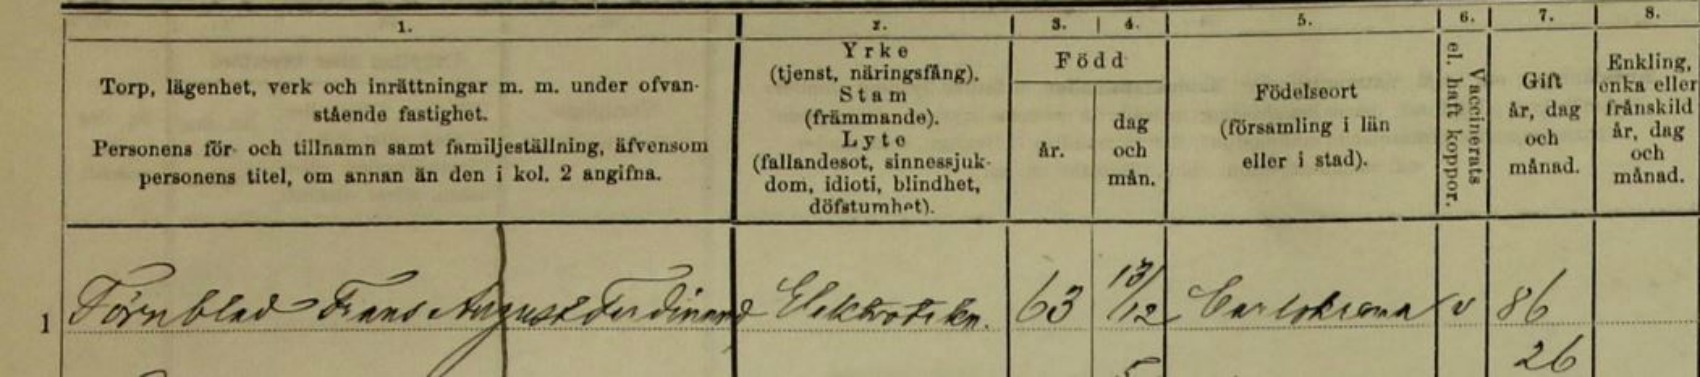 1. 2. 3. 4. 5. 6. 7. 8.
Torp, lägenhet, verk och inrättningar m. m. under ofvan-
stående fastighet.
Personens för- och tillnamn samt familjeställning, äfvensom
personens titel, om annan än den i kol. 2 angifna.
Yrke
(tjenst, näringsfång).
Stam
(främmande).
Lyte
(fallandesot, sinnessjuk-
dom, idioti, blindhet,
döfstumhet).
Född
år.
dag
och
mån.
Födelseort
(församling i län
eller i stad).
Vaccinerats
el. haft koppor.
Gift
år, dag
och
månad.
Enkling,
enka eller
frånskild
år, dag
och
månad.
1 Törnblad Frans August Ferdinand Elektrotekn. 63 13/12 Carlskrona v 86
5 26